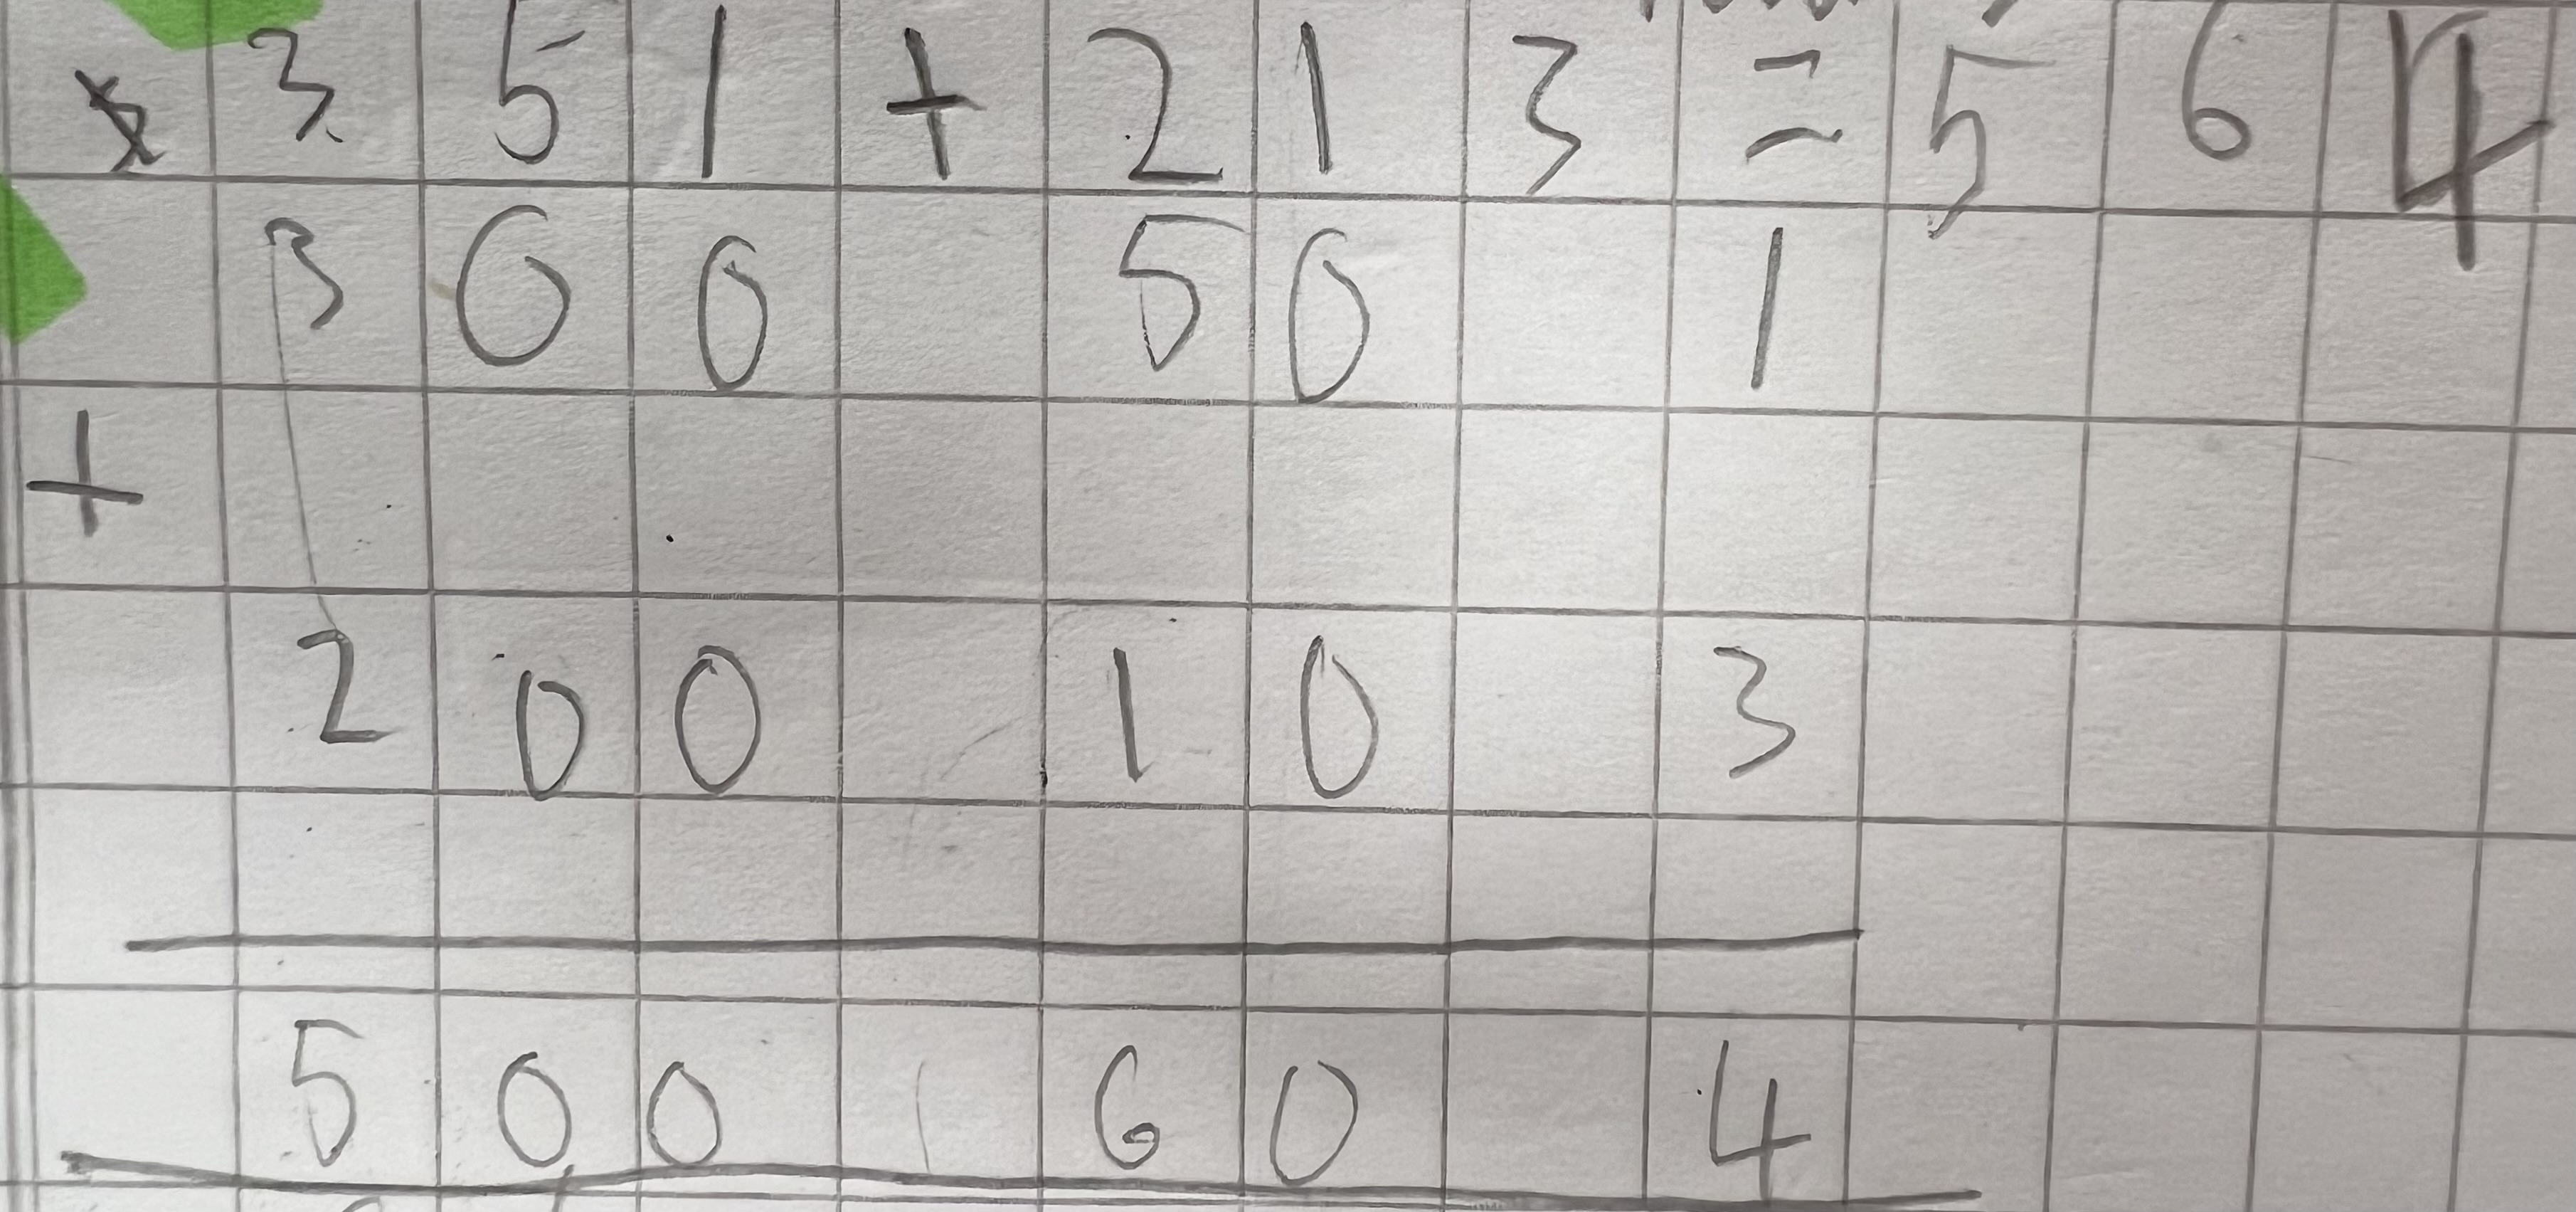 351+213=564
300 50 1
+
200 10 3
500 60 4